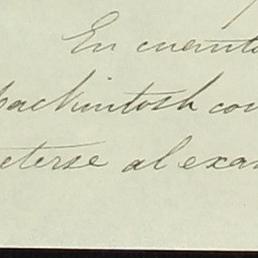 En cuanto
ackintosh con
eterse al exa